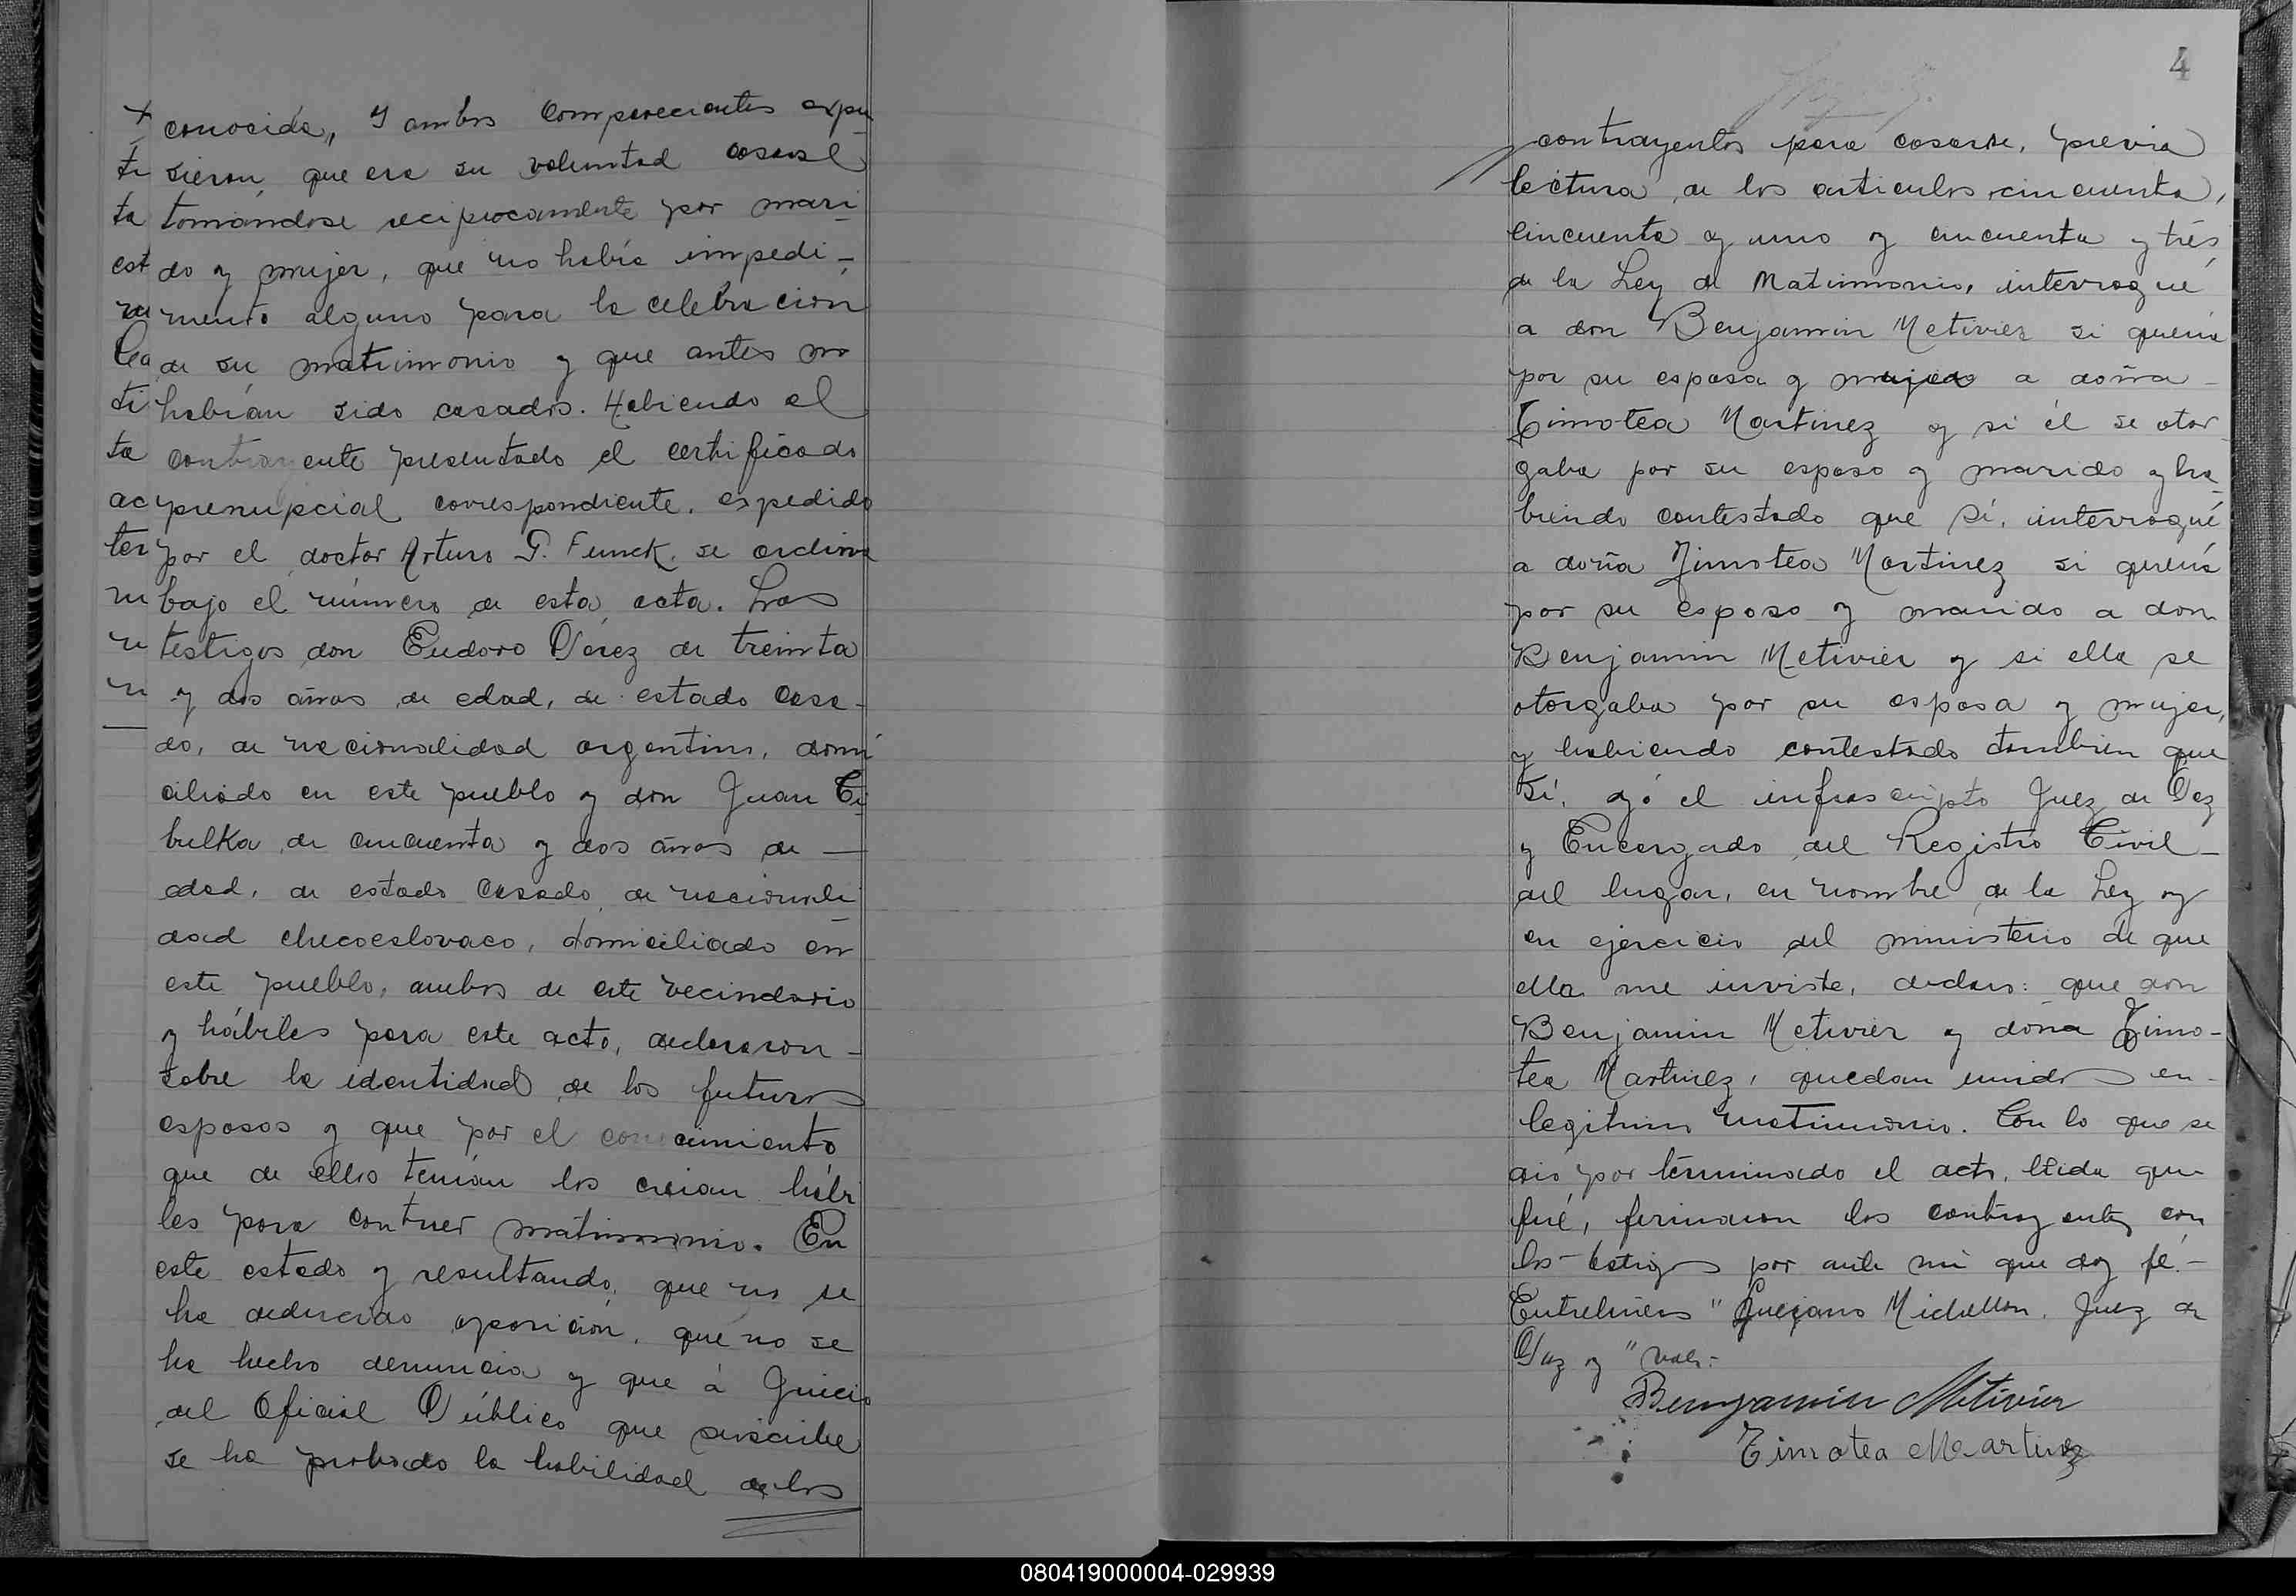 conocida, y ambos comparecientes expu
sieron, que era su voluntad casarse
tomándose reciprocamente por mari
do y mujer, que no había impedi-
mento alguno para la celebracion
de su matrimonio y que antes no
habían sido casados. Habiendo el
contrayente presentado el certificado
prenupcial correspondiente, expedido
por el doctor Arturo P. Funck, se archiva
bajo el número de esta acta. Los
testigos don Eudoro Pérez de treinta
y dos años de edad, de estado casa-
do, de nacionalidad argentino, domi
ciliado en este pueblo y don Juan Ci
bulka de cincuenta y dos años de —
edad, de estado casado, de nacionali
dad checoeslovaco, domiciliado en
este pueblo, ambos de este vecindario
y hábiles para este acto, declararon -
sobre la identidad de los futuros
esposos y que por el conocimiento
que de ellos tenían los creian hábi
les para contraer matrimonio. En
este estado y resultando, que no se
ha deducido oposición, que no se
ha hecho denuncia y que á Juicio
del Oficial Público que suscribe
se ha probado la habilidad de los
4
contrayentes para casarse, previa
lectura de los articulos cincuenta,
cincuenta y uno y cincuenta y trés
de la Ley de Matrimonio, interrogué
a don Benjamin Metivier si quería
por su esposa y mujer a doña -
Timotea Martinez y si él se otor
gaba por su esposo y marido y ha
biendo contestado que sí, interrogué
a doña Timotea Martinez si quería
por su esposo y marido a don
Benjamin Metivier y si ella se
otorgaba por su esposa y mujer,
y habiendo contestado tambien que
sí, yó el infrascripto Juez de Paz
y Encargado del Registro Civil -
del lugar, en nombre de la Ley y
en ejercicio del ministerio de que
ella me inviste, declaro: que don
Benjamin Metivier y doña Timo-
tea Martinez, quedan unidos en -
legitimo matrimonio. Con lo que se
dió por términado el acto, leida que
fué, firmaron los contrayentes con
los testigos por ante mi que doy fé.-
Entrelineas " Juez de
Paz y " vale.-
Benjamin Metivier
Timotea Martinez
080419000004-029939